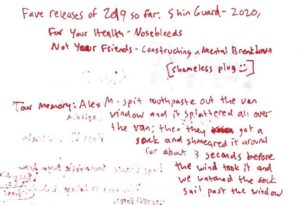 Fave releases of 2019 so far: Shin Guard - 2020,
For Your Health - Nosebleeds
Not Your Friends - Constructing a Mental Breakdown
[shameless plug :)]
Tour Memory: Alex M. spit toothpaste out the van
window and it splattered all over
the van; then they got a
sock and smeared it around
for about 3 seconds before
the wind took it and
we watched the sock
sail past the window